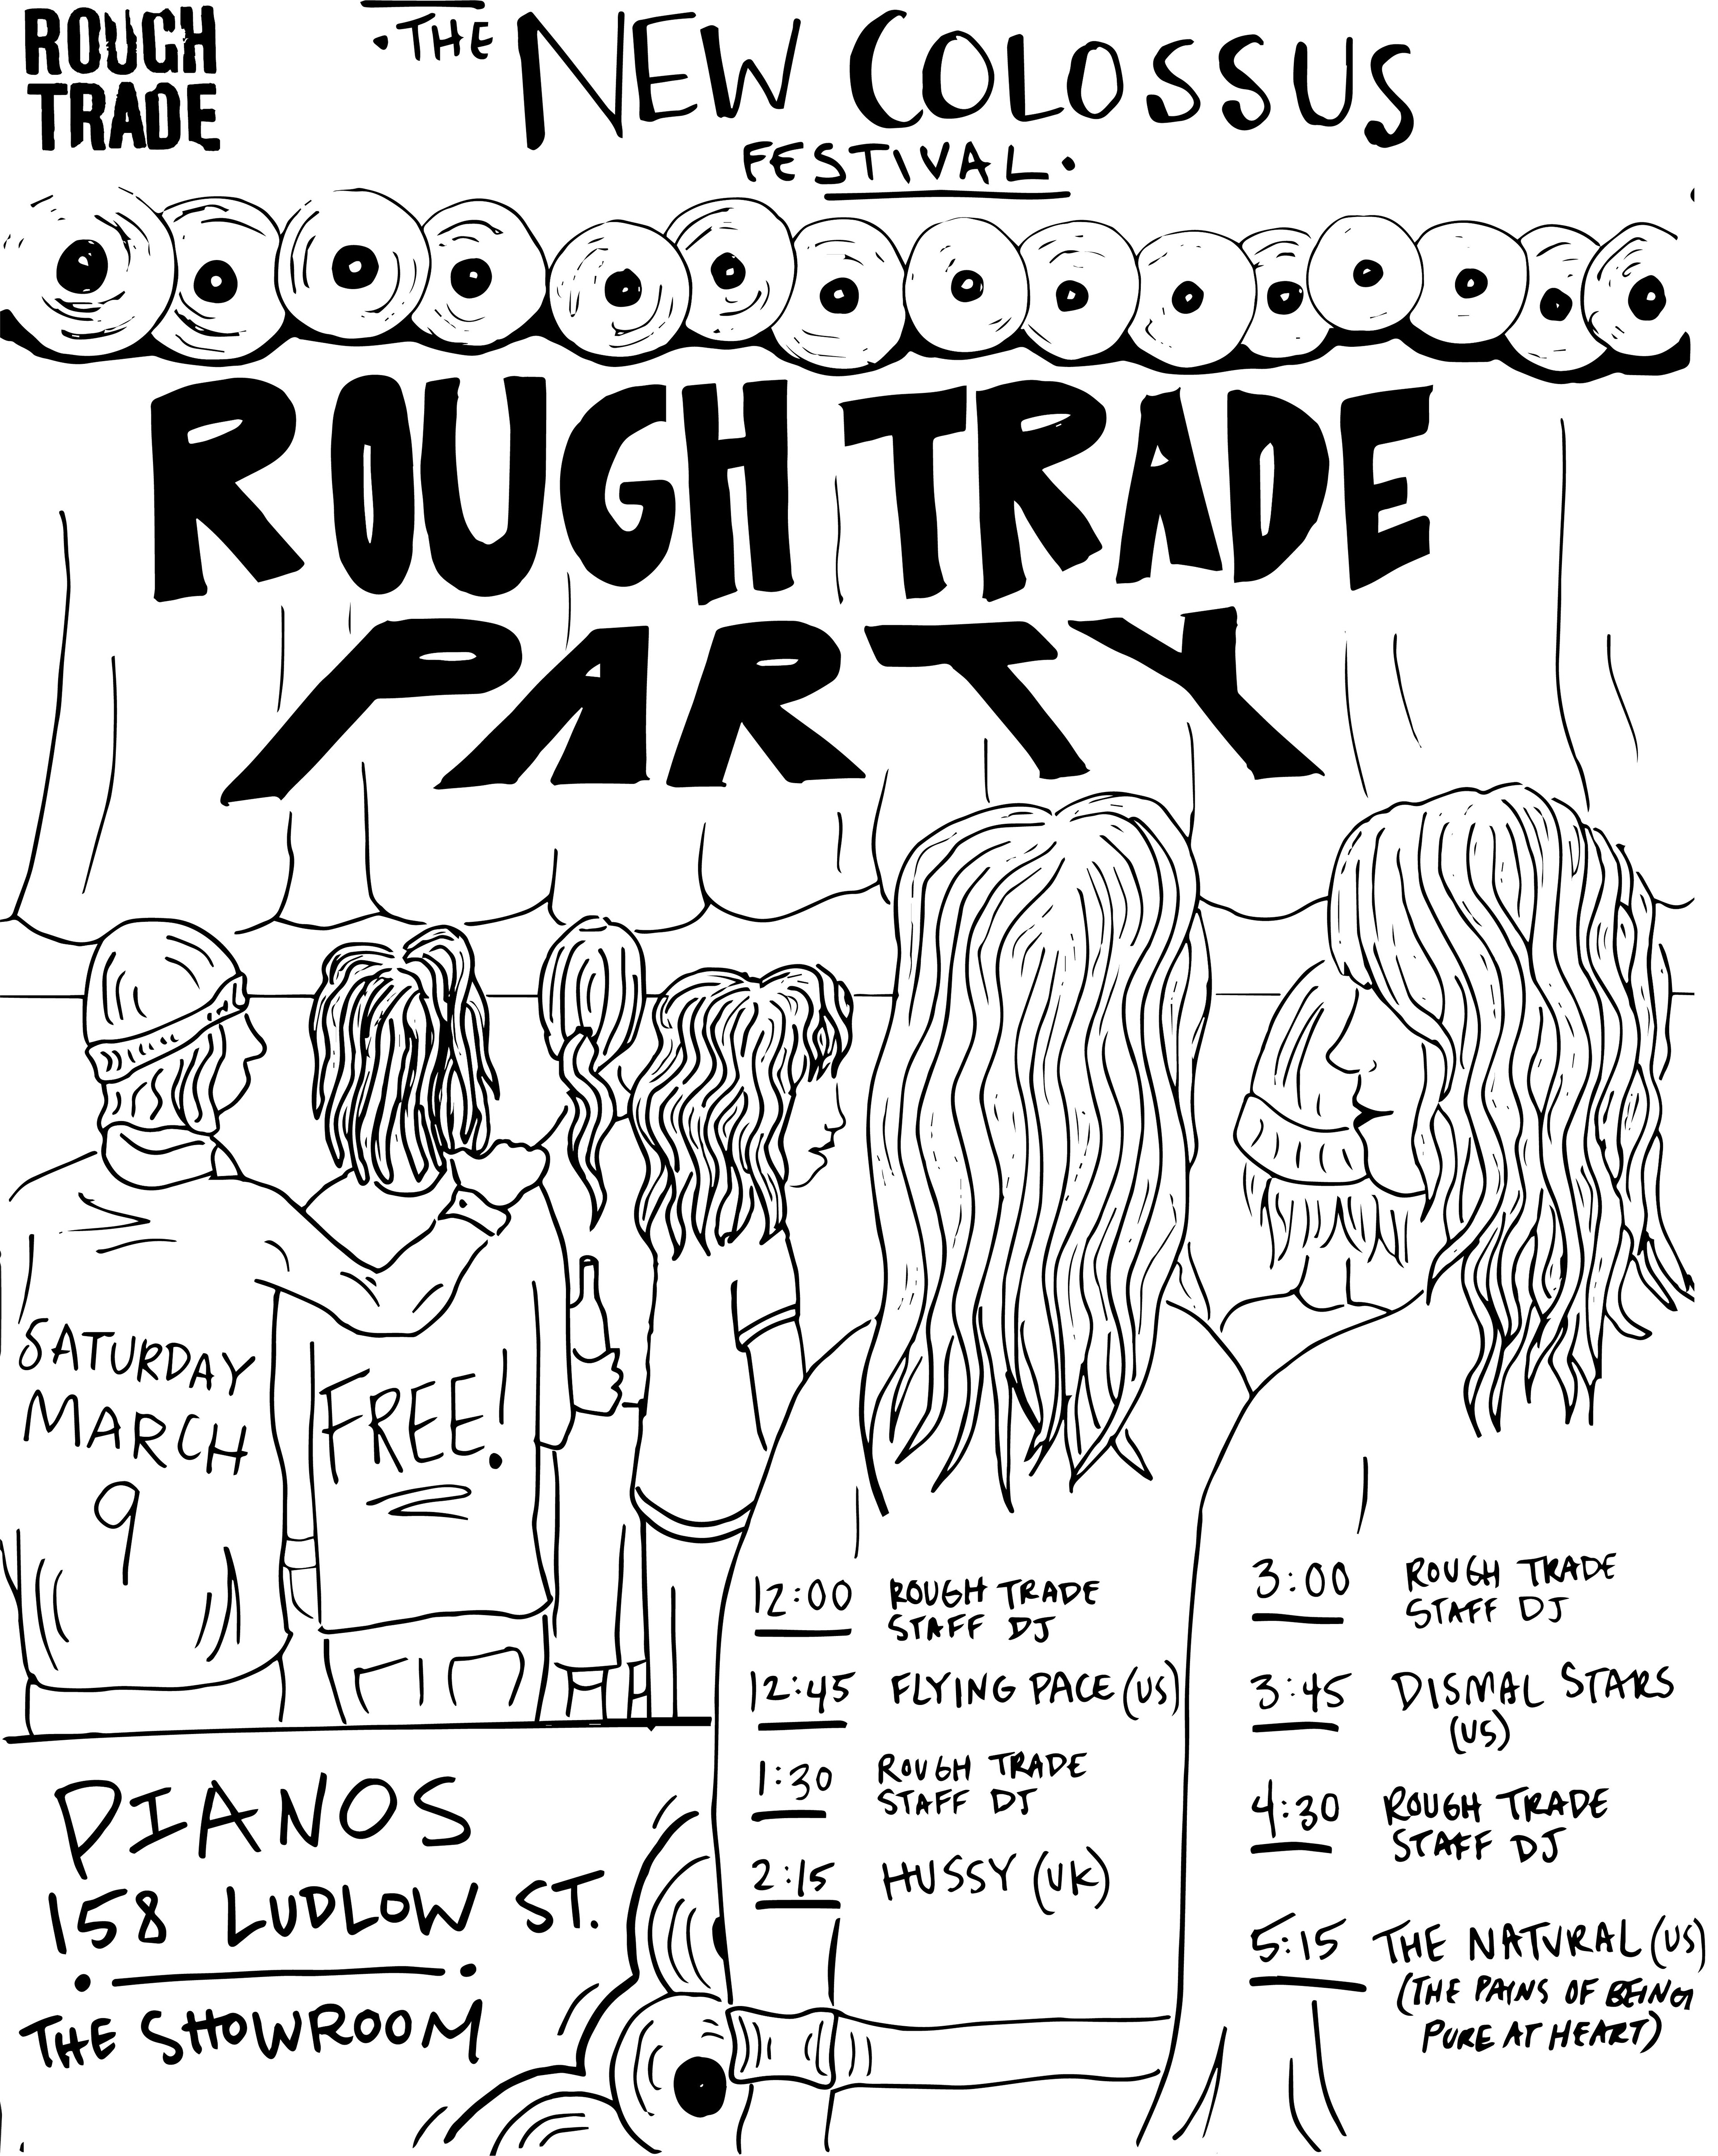 ROUGH
TRADE
·THE NEW COLOSSUS
FESTIVAL·
ROUGH TRADE
PARTY
SATURDAY
MARCH
9
FREE!
PIANOS
158 LUDLOW ST.
THE SHOWROOM
12:00 ROUGH TRADE
STAFF DJ
12:45 FLYING PACE (US)
1:30 ROUGH TRADE
STAFF DJ
2:15 HUSSY (UK)
3:00 ROUGH TRADE
STAFF DJ
3:45 DISMAL STARS
(US)
4:30 ROUGH TRADE
STAFF DJ
5:15 THE NATVRAL (US)
(THE PAINS OF BEING
PURE AT HEART)